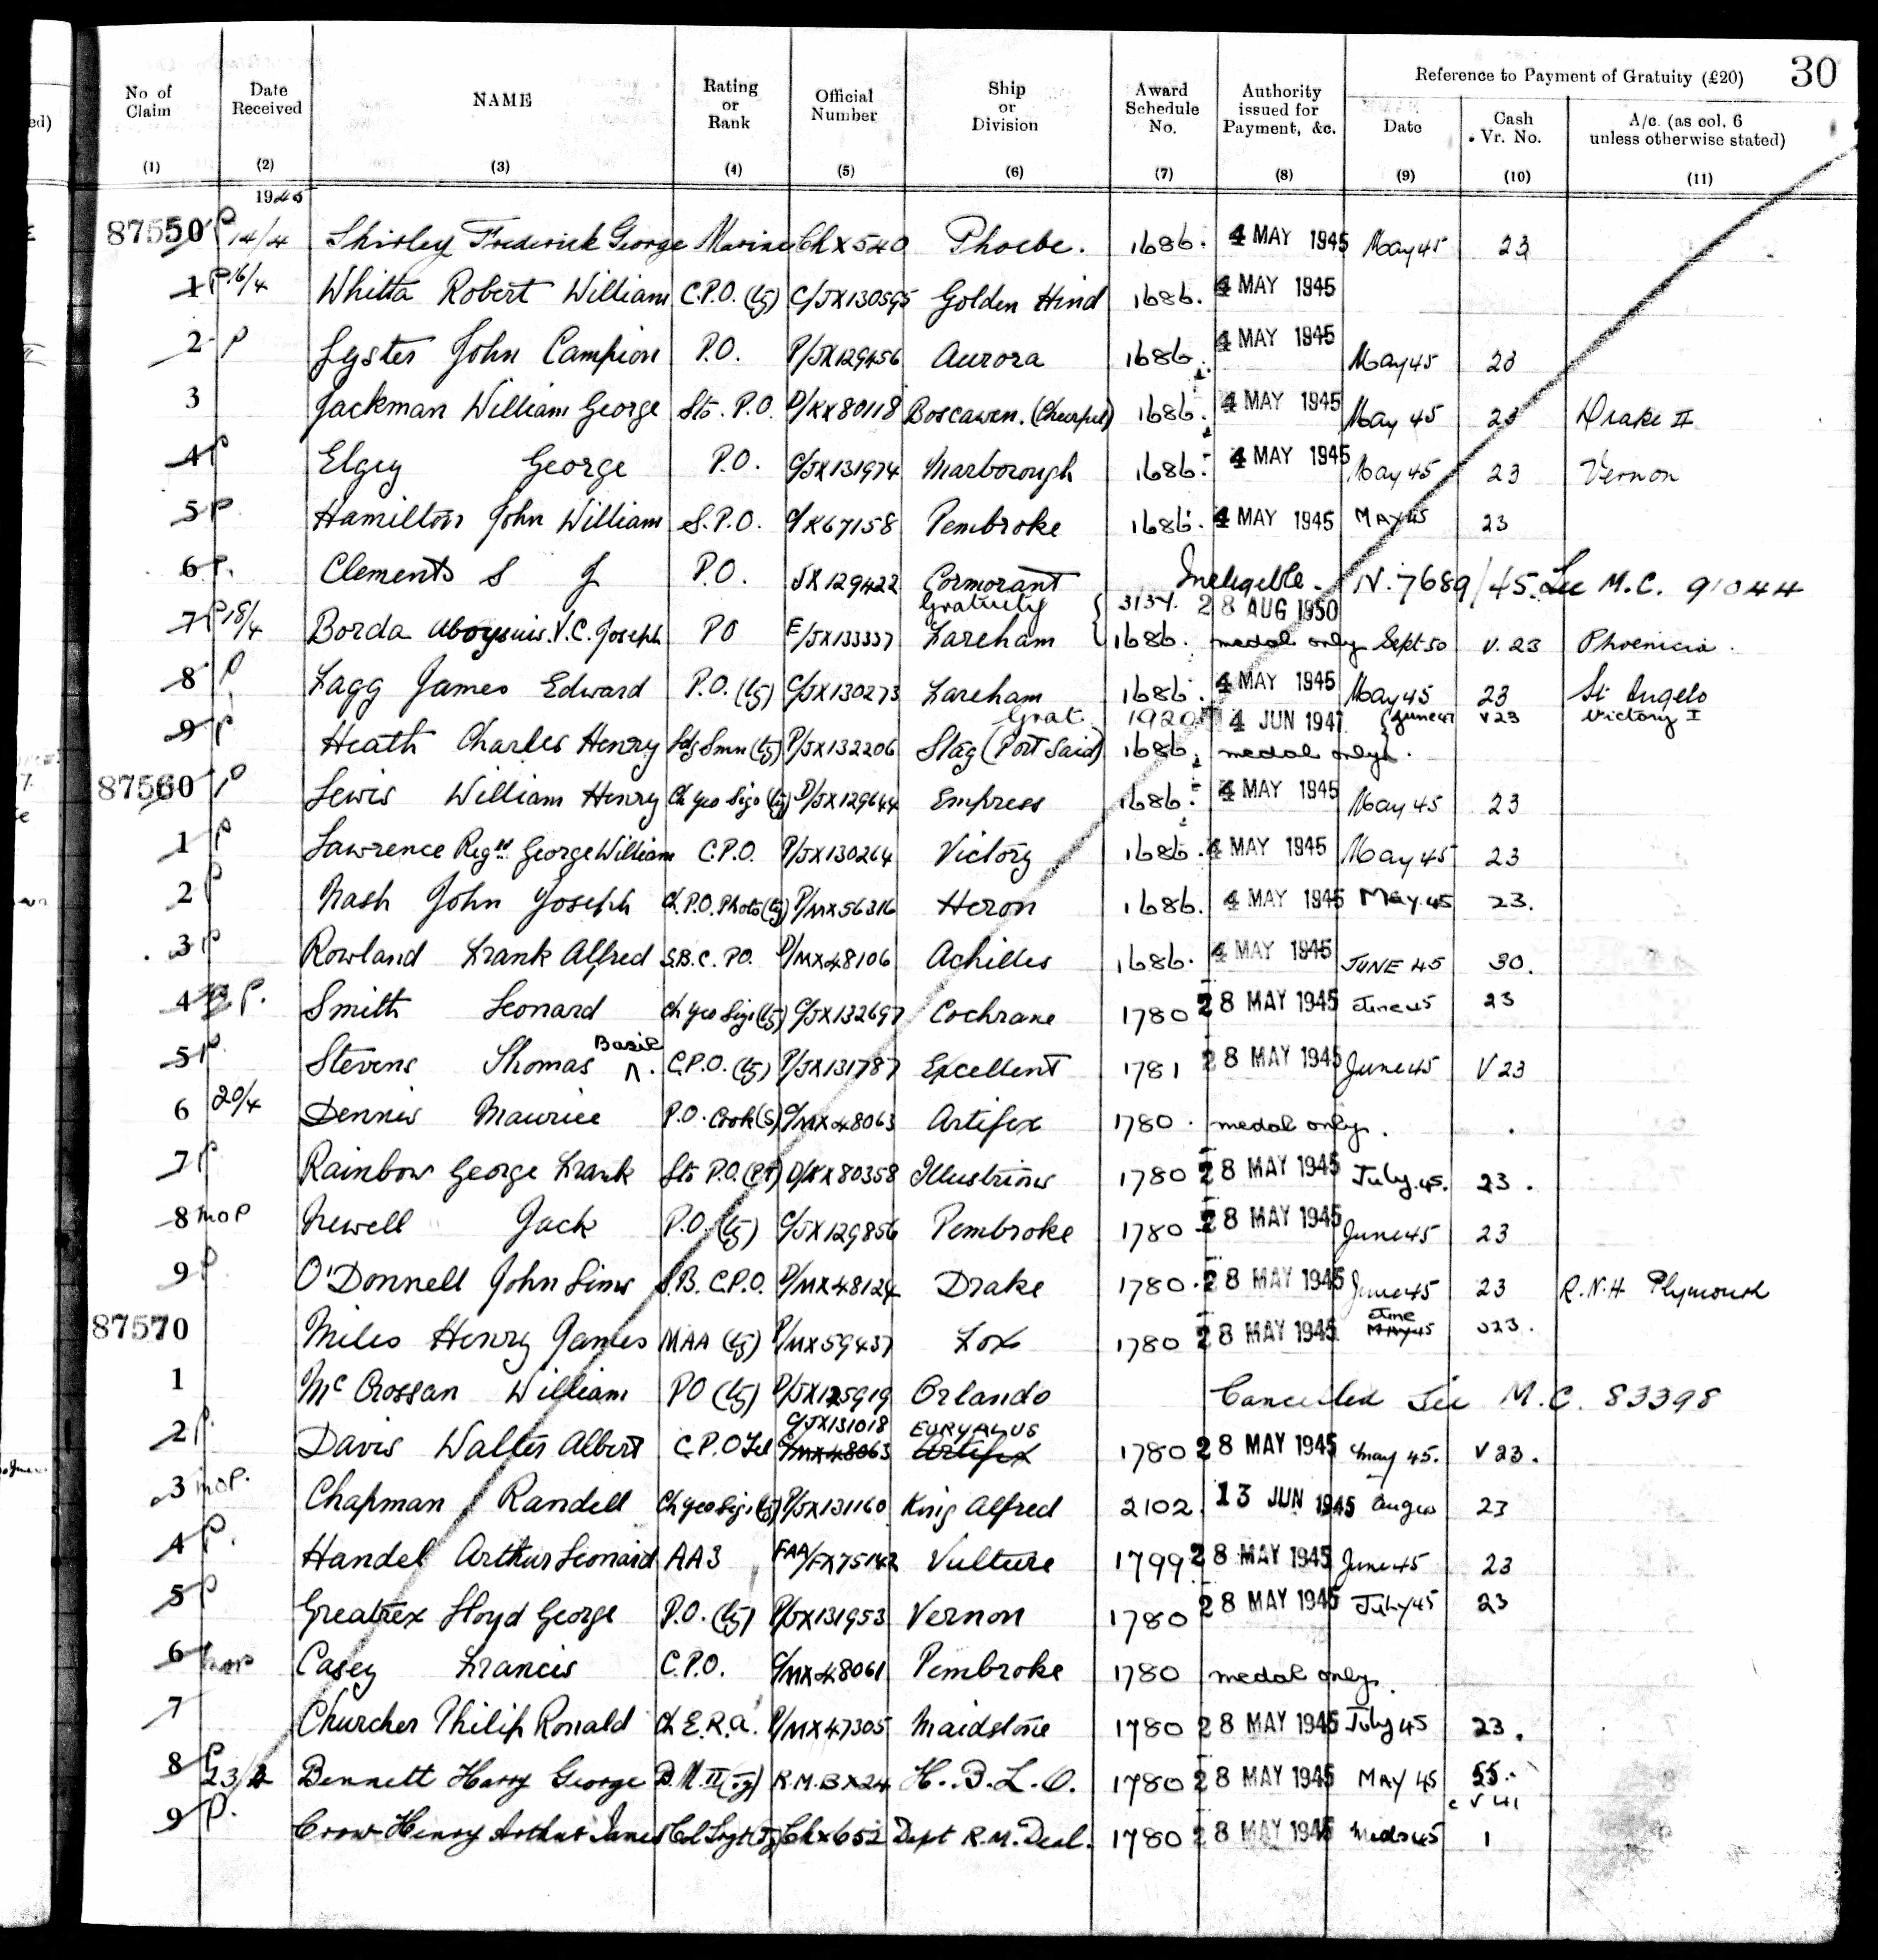 30
No of Claim Date Received NAME Rating or Rank Official Number Ship or Division Award Schedule No. Authority issued for Payment, &c. Reference to Payment of Gratuity (£20)
Date Cash Vr. No. A/c. (as col. 6 unless otherwise stated)
(1) (2) (3) (4) (5) (6) (7) (8) (9) (10) (11)
1945
87550 P 14/4 Shirley Frederick George Marine Ch X 540 Phoebe. 1686. 4 MAY 1945 May 45 23
1 P 16/4 Whitta Robert William C.P.O. (Ty) C/JX130595 Golden Hind 1686. 4 MAY 1945
2 P Lyster John Campion P.O. P/JX129456 Aurora 1686. 4 MAY 1945 May 45 23
3 Jackman William George Sto. P.O. D/KX80118 Boscawen. (Cheerful) 1686. 4 MAY 1945 May 45 23 Drake II
4 P Elgey George P.O. C/JX131974 Marborough 1686. 4 MAY 1945 May 45 23 Vernon
5 P. Hamilton John William S.P.O. C/K67158 Pembroke 1686. 4 MAY 1945 MAY 45 23
6 P. Clements S J P.O. JX129422 Cormorant Ineligible. N. 7689/45. See M.C. 91044
Gratuity 3134. 28 AUG 1950
7 P 18/4 Borda Aloysuis. V.C. Joseph PO E/JX133337 Fareham 1686. medal only Sept 50 V. 23 Phoenicia.
8 P Fagg James Edward P.O. (Ty) C/JX130273 Fareham 1686. 4 MAY 1945 May 45 23 St Angelo
Grat. 1920 4 JUN 1947 June 47 V23 Victory I
9 P Heath Charles Henry Ldg Smn (Ty) P/JX132206 Stag (Port Said) 1686. medal only.
87560 P Lewis William Henry Ch Yeo Sigs (Ty) P/JX129644 Empress 1686. 4 MAY 1945 May 45 23
1 P Lawrence Regd. George William C.P.O. P/JX130264 Victory 1686. 4 MAY 1945 May 45 23
2 P Nash John Joseph Ch. P.O. Photo (Ty) P/MX56316 Heron 1686. 4 MAY 1945 May. 45 23.
3 P Rowland Frank Alfred S.B.C. PO. D/MX48106 Achilles 1686. 4 MAY 1945 JUNE 45 30.
4 P. Smith Leonard Ch Yeo Sigs (Ty) C/JX132697 Cochrane 1780 28 MAY 1945 June 45 23
5 P. Stevens Thomas Basil. C.P.O. (Ty) P/JX131787 Excellent 1781 28 MAY 1945 June 45 V 23
6 20/4 Dennis Maurice P.O. Cook (S) C/MX48063 Artifex 1780. medal only.
7 P. Rainbow George Frank Sto P.O. (PT) D/KX80358 Illustrious 1780 28 MAY 1945 July. 45. 23.
8 mop Newell Jack P.O. (Ty) C/JX129856 Pembroke 1780 28 MAY 1945 June 45 23
9 P O'Donnell John Sims S.B. C.P.O. D/MX48124 Drake 1780. 28 MAY 1945 June 45 23 R.N.H Plymouth
87570 Miles Henry James MAA (Ty) P/MX59437 Fox 1780 28 MAY 1945 June MAY 45 23.
1 Mc Crossan William PO (Ty) D/JX125919 Orlando Cancelled See M.C. 83398
C/JX131018 EURYALUS
2 P. Davis Walter Albert C.P.O Tel C/MX48063 Artifex 1780 28 MAY 1945 may 45. V 23.
3 mop. Chapman Randell Ch Yeo Sigs (Ty) P/JX131160 King Alfred 2102. 13 JUN 1945 23
4 P. Handel Arthur Leonard AA3 FAA/FX75142 Vulture 1799 28 MAY 1945 June 45 23
5 P Greatrex Lloyd George P.O. (Ty) P/JX131953 Vernon 1780 28 MAY 1945 July 45 23
6 mop Casey Francis C.P.O. C/MX48061 Pembroke 1780 medal only.
7 Churcher Philip Ronald Ch E.R.A. P/MX47305 Maidstone 1780 28 MAY 1945 July 45 23.
8 P 23/4 Bennett Harry George B.M. II (Ty) R.M.B X24 H.B.L.O. 1780 28 MAY 1945 MAY 45 55.
9 P. Crow Henry Arthur James Col Sergt (Ty) Ch X 652 Dept R.M. Deal. 1780 28 MAY 1945 1